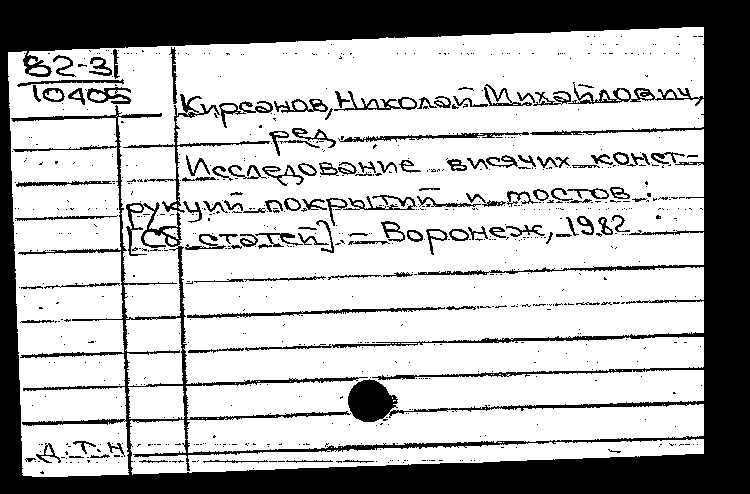 82-3
10405
Кирсанов, Николай Михайлович,
ред.
Исследование висячих конст-
рукций покрытий и мостов :
[Сб статей]. – Воронеж, 1982.
Д.Т.Н